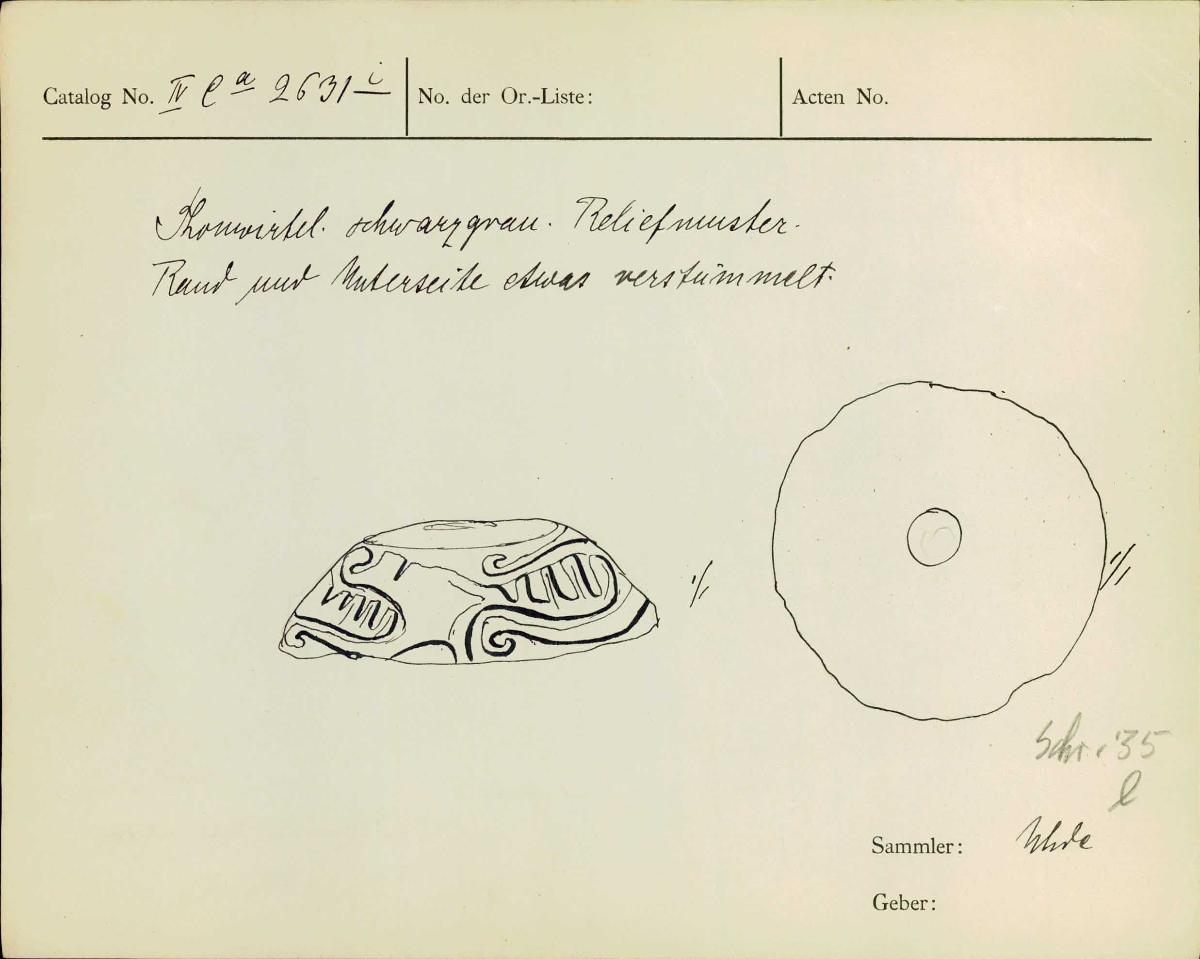 Catalog No. IV Ca 2631 i No. der Or.-Liste: Acten No.
Thonwirtel. schwarzgrau. Reliefmuster.
Rand und Unterseite etwas verstümmelt.
1/1
1/1
Schr. 35
l
Sammler: Uhde
Geber: